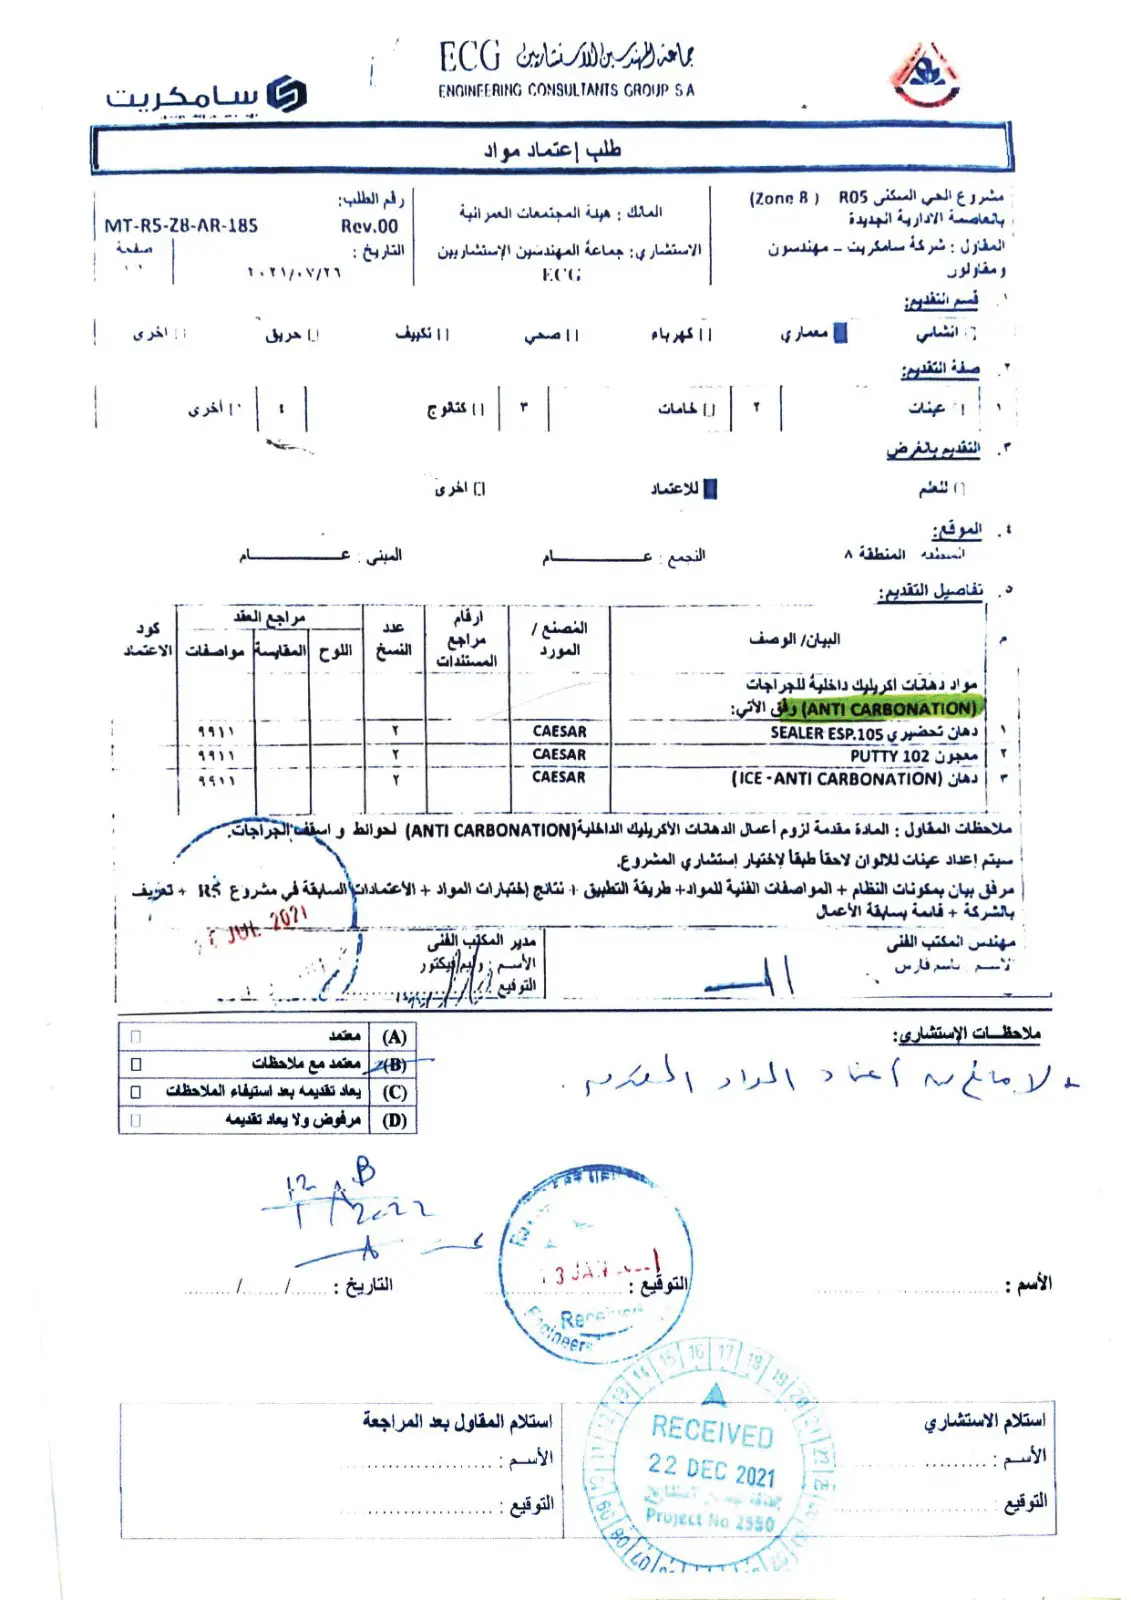 ECG جماعة المهندسين الاستشاريين
ENGINEERING CONSULTANTS GROUP S A
سامكريت
طلب إعتماد مواد
مشروع الحي السكني R05 ( Zone 8)
بالعاصمة الادارية الجديدة
المقاول : شركة سامكريت – مهندسون
ومقاولون
المالك : هيئة المجتمعات العمرانية
الاستشاري: جماعة المهندسين الإستشاريين
ECG
رقم الطلب:
MT-R5-Z8-AR-185 Rev.00
التاريخ : ٢٠٢١/٠٧/٢٦
صفحة
١. قسم التقديم:
انشائي معماري كهرباء صحي تكييف حريق اخرى
٢. صفة التقديم:
١ عينات ٢ خامات ٣ كتالوج ٤ أخرى
٣. التقديم بالغرض
للعلم للاعتماد اخرى
٤. الموقع:
المنطقة المنطقة ٨ التجمع : عــــــــام المبنى : عــــــــام
٥. تفاصيل التقديم:
م البيان/ الوصف المصنع / المورد ارقام مراجع المستندات عدد النسخ مراجع العقد كود الاعتماد
اللوح المقايسة مواصفات
مواد دهانات أكريليك داخلية للجراجات
(ANTI CARBONATION) وفق الآتي:
١ دهان تحضيري SEALER ESP.105 CAESAR ٢ ٩٩١١
٢ معجون PUTTY 102 CAESAR ٢ ٩٩١١
٣ دهان (ICE -ANTI CARBONATION) CAESAR ٢ ٩٩١١
ملاحظات المقاول : المادة مقدمة لزوم أعمال الدهانات الأكريليك الداخلية(ANTI CARBONATION) لحوائط و اسقف الجراجات.
سيتم إعداد عينات للالوان لاحقاً طبقاً لإختيار إستشاري المشروع.
مرفق بيان بمكونات النظام + المواصفات الفنية للمواد+ طريقة التطبيق + نتائج إختبارات المواد + الأعتمادات السابقة في مشروع R5 + تعريف
بالشركة + قائمة بسابقة الأعمال
JUL 2021
مهندس المكتب الفنى
الاسم : باسم فارس
مدير المكتب الفنى
الأسم : وليم فيكتور
التوقيع :
ملاحظات الإستشاري:
(A) معتمد
(B) معتمد مع ملاحظات
(C) يعاد تقديمه بعد استيفاء الملاحظات
(D) مرفوض ولا يعاد تقديمه
لا مانع من اعتماد المواد المقدمة .
B
12
1 / 2022
13 JAN
Received
Engineers
الأسم : التوقيع : التاريخ : ....../....../......
استلام الاستشاري
الأسم :
التوقيع :
استلام المقاول بعد المراجعة
الأسم :
التوقيع :
RECEIVED
22 DEC 2021
Project No 2550